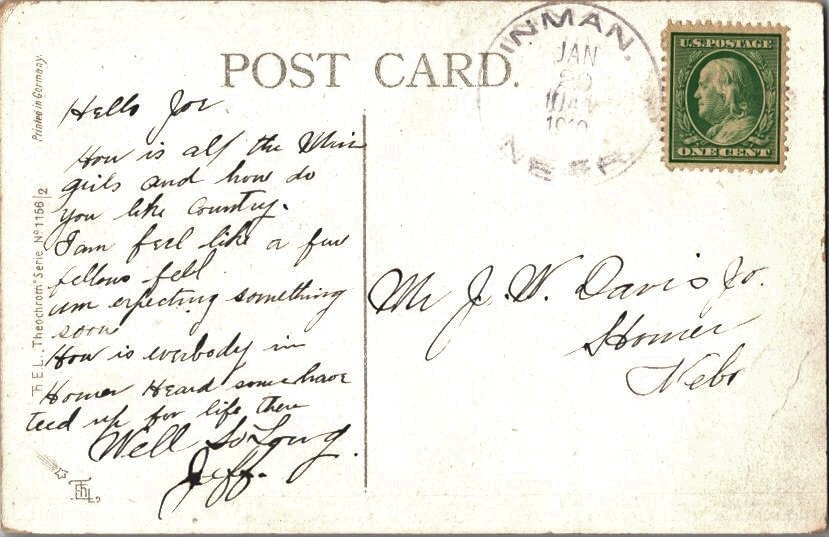 POST CARD.
INMAN.
JAN
1910
NEBR
U.S. POSTAGE
ONE CENT
Printed in Germany.
T.H.E.L. "Theochrom" Serie Nº 1156/2
Hello Joe
How is all the
girls and how do
you like Country.
I am feel like a few
fellows fell
um expecting something
soon
How is everbody in
Homer Heard some have
teed up for life there
Well So Long.
Jeff.
Mr J. W. Davis Jr.
Homer
Nebr